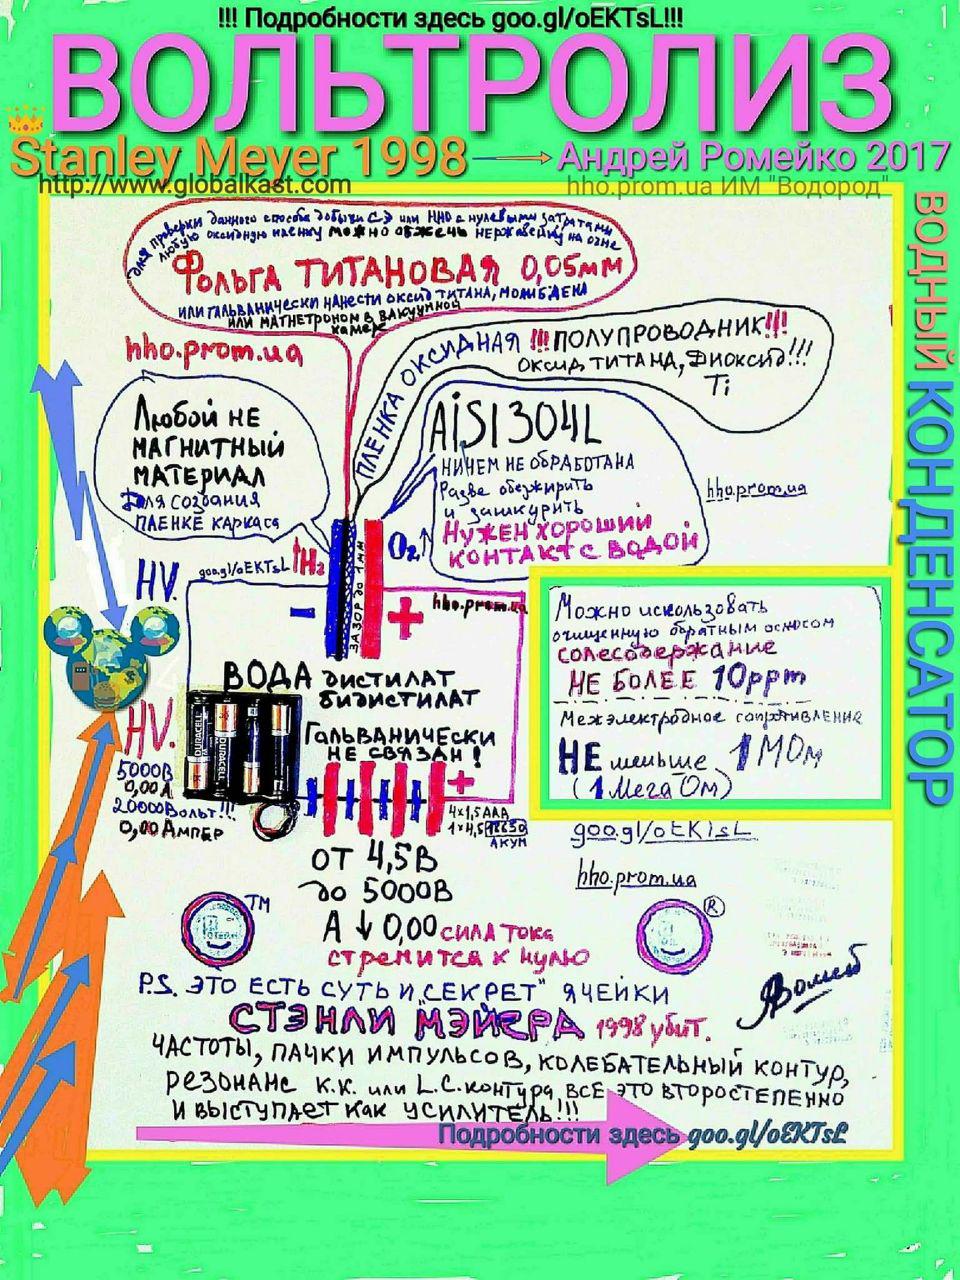 !!! Подробности здесь goo.gl/oEKTsL!!!
ВОЛЬТРОЛИЗ
Stanley Meyer 1998 → Андрей Ромейко 2017
http://www.globalkast.com
hho.prom.ua ИМ "Водород"
ВОДНЫЙ КОНДЕНСАТОР
Для проверки данного способа добычи СЭ или ННО с нулевыми затратами
любую оксидную пленку можно обжечь нержавейку на огне
Фольга ТИТАНОВАЯ 0,05мм
или гальванически нанести оксид титана, молибдена
или магнетроном в вакуумной
камере
hho.prom.ua
ПЛЕНКА ОКСИДНАЯ !!!ПОЛУПРОВОДНИК!!!
ОКСИД ТИТАНА, Диоксид!!!
Ti
Любой НЕ
МАГНИТНЫЙ
МАТЕРИАЛ
Для создания
ПЛЕНКЕ каркаса
AiSI 304L
НИЧЕМ НЕ ОБРАБОТАНА
Разве обезжирить
и зашкурить
Нужен хороший
контакт с водой
hho.prom.ua
HV.
goo.gl/oEKTsL
↑H2
O2↑
ЗАЗОР до 1 мм
-
+
hho.prom.ua
ВОДА ДИСТИЛАТ
БИДИСТИЛАТ
Гальванически
НЕ СВЯЗАН!
HV.
5000В
0,00А
20000Вольт!!!
0,00 Ампер
DURACELL
DURACELL
+
4x1,5 AAA
1x4,5 18650
АКУМ
Можно использовать
очищенную обратным осмосом
солесодержание
НЕ БОЛЕЕ 10ppm
Межэлектродное сопротивление
НЕ меньше 1МОм
(1 Мега Ом)
goo.gl/oEKTsL
hho.prom.ua
ОТ 4,5В
до 5000В
А ↓ 0,00 сила тока
стремится к нулю
TM
®
P.S. ЭТО ЕСТЬ СУТЬ И "СЕКРЕТ" ЯЧЕЙКИ
СТЭНЛИ МЭЙЕРА 1998 убит.
ЧАСТОТЫ, ПАЧКИ ИМПУЛЬСОВ, КОЛЕБАТЕЛЬНЫЙ КОНТУР,
РЕЗОНАНС К.К. или L.C. контура, ВСЕ ЭТО ВТОРОСТЕПЕННО
И ВЫСТУПАЕТ КАК УСИЛИТЕЛЬ!!!
Подробности здесь goo.gl/oEKTsL